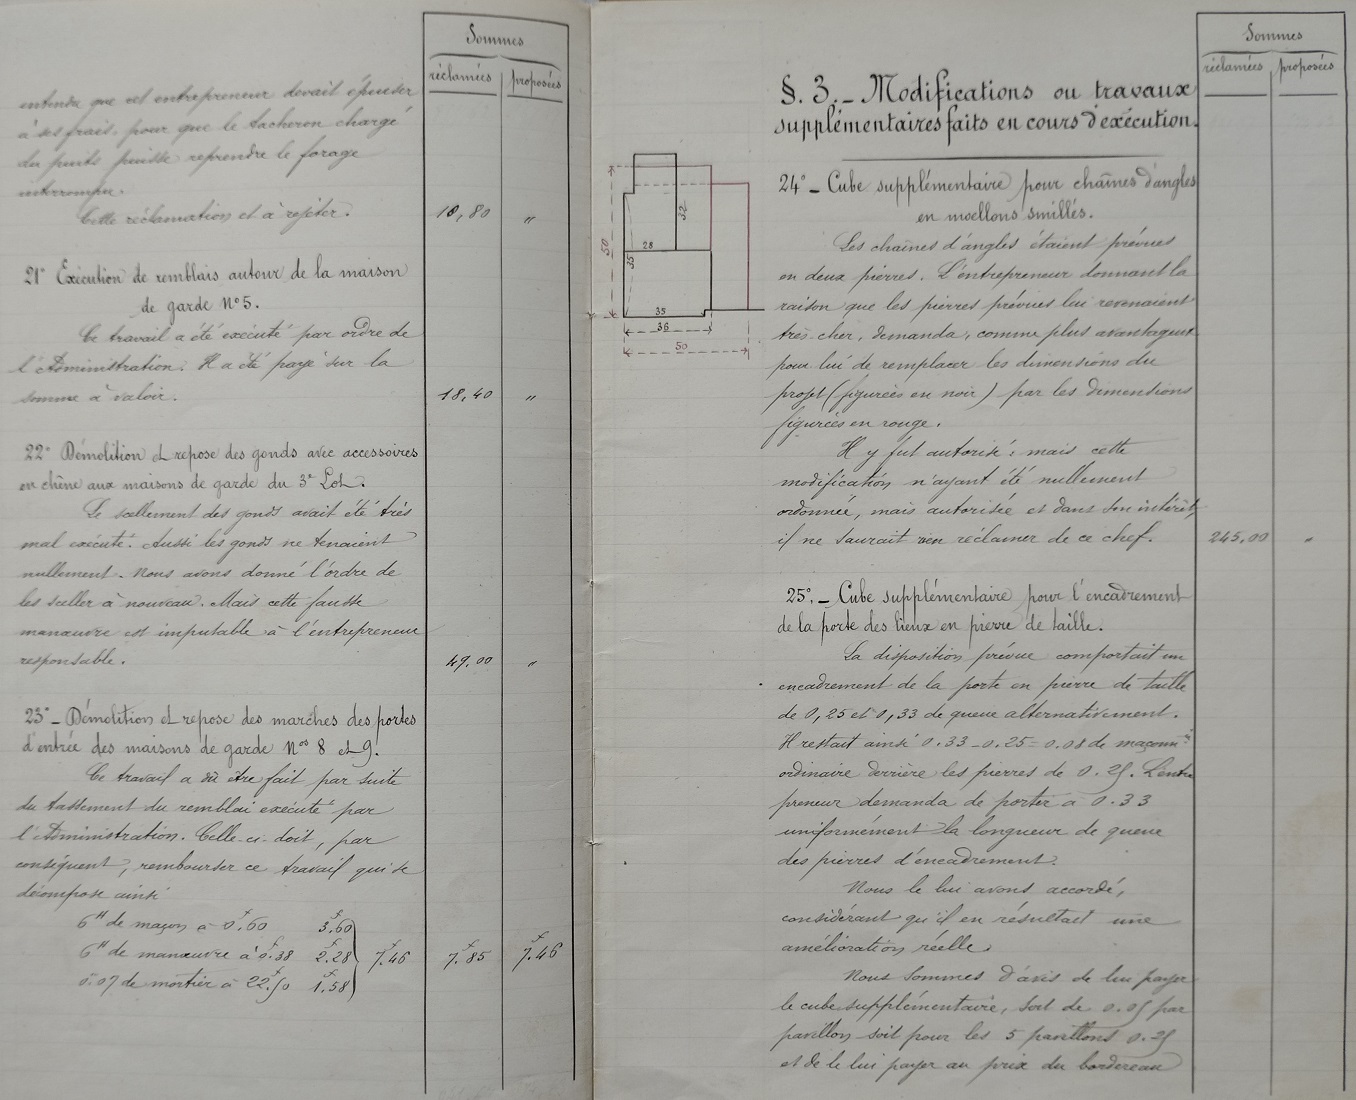 Sommes
réclamées proposées
entendu que cet entrepreneur devait épuiser
à ses frais, pour que le tacheron chargé
du puits puisse reprendre le forage
interrompu.
Cette réclamation est à rejeter. 10,80 "
21° Exécution de remblais autour de la maison
de garde N° 5.
Ce travail a été exécuté par ordre de
l'Administration. Il a été payé sur la
somme à valoir. 18,40 "
22° Démolition et repose des gonds avec accessoires
en chêne aux maisons de garde du 3e Lot.
Le scellement des gonds avait été très
mal exécuté. Aussi les gonds ne tenaient
nullement. Nous avons donné l'ordre de
les sceller à nouveau. Mais cette fausse
manœuvre est imputable à l'entrepreneur
responsable. 49.00 "
23° - Démolition et repose des marches des portes
d'entrée des maisons de garde Nos 8 et 9.
Ce travail a dû être fait par suite
du tassement du remblai exécuté par
l'Administration. Celle-ci doit, par
conséquent, rembourser ce travail qui se
décompose ainsi
6H de maçon à 0f.60 3f.60
6H de manœuvre à 0f.38 2f.28 7f.46 7f.85 7f.46
0.07 de mortier à 22f.50 1f.58
Sommes
réclamées proposées
§. 3. - Modifications ou travaux
supplémentaires faits en cours d'exécution.
50
32
28
35
35
36
50
24° - Cube supplémentaire pour chaînes d'angles
en moellons smillés.
Les chaînes d'angles étaient prévues
en deux pierres. L'entrepreneur donnant la
raison que les pierres prévues lui revenaient
très cher, demanda, comme plus avantageux
pour lui de remplacer les dimensions du
projet (figurées en noir) par les dimensions
figurées en rouge.
Il y fut autorisé : mais cette
modification n'ayant été nullement
ordonnée, mais autorisée et dans son intérêt,
il ne saurait rien réclamer de ce chef. 245,00 "
25°. - Cube supplémentaire pour l'encadrement
de la porte des lieux en pierre de taille.
La disposition prévue comportait un
encadrement de la porte en pierre de taille
de 0,25 et 0,33 de queue alternativement.
Il restait ainsi 0.33 - 0.25 = 0.08 de maçonnie
ordinaire derrière les pierres de 0.25. L'entre
preneur demanda de porter à 0.33
uniformément la longueur de queue
des pierres d'encadrement.
Nous le lui avons accordé,
considérant qu'il en résultait une
amélioration réelle.
Nous sommes d'avis de lui payer
le cube supplémentaire, soit de 0.05 par
pavillon soit pour les 5 pavillons 0.25
et de le lui payer au prix du bordereau